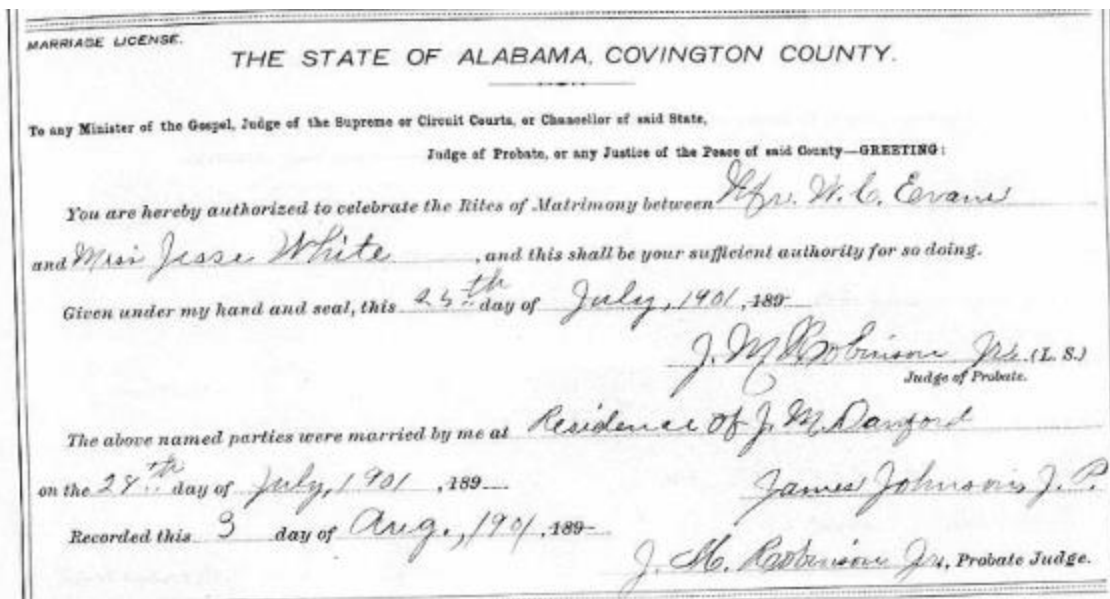 MARRIAGE LICENSE.
THE STATE OF ALABAMA, COVINGTON COUNTY.
To any Minister of the Gospel, Judge of the Supreme or Circuit Courts, or Chancellor of said State,
Judge of Probate, or any Justice of the Peace of said County—GREETING:
You are hereby authorized to celebrate the Rites of Matrimony between Mr. W. C. Evans
and Miss Jesse White, and this shall be your sufficient authority for so doing.
Given under my hand and seal, this 25th day of July, 1901, 189
J. M. Robinson Jr. (L. S.)
Judge of Probate.
The above named parties were married by me at Residence of J. M. Danford
on the 28th day of July, 1901, 189
James Johnson, J. P.
Recorded this 3 day of Aug., 1901, 189
J. M. Robinson Jr., Probate Judge.